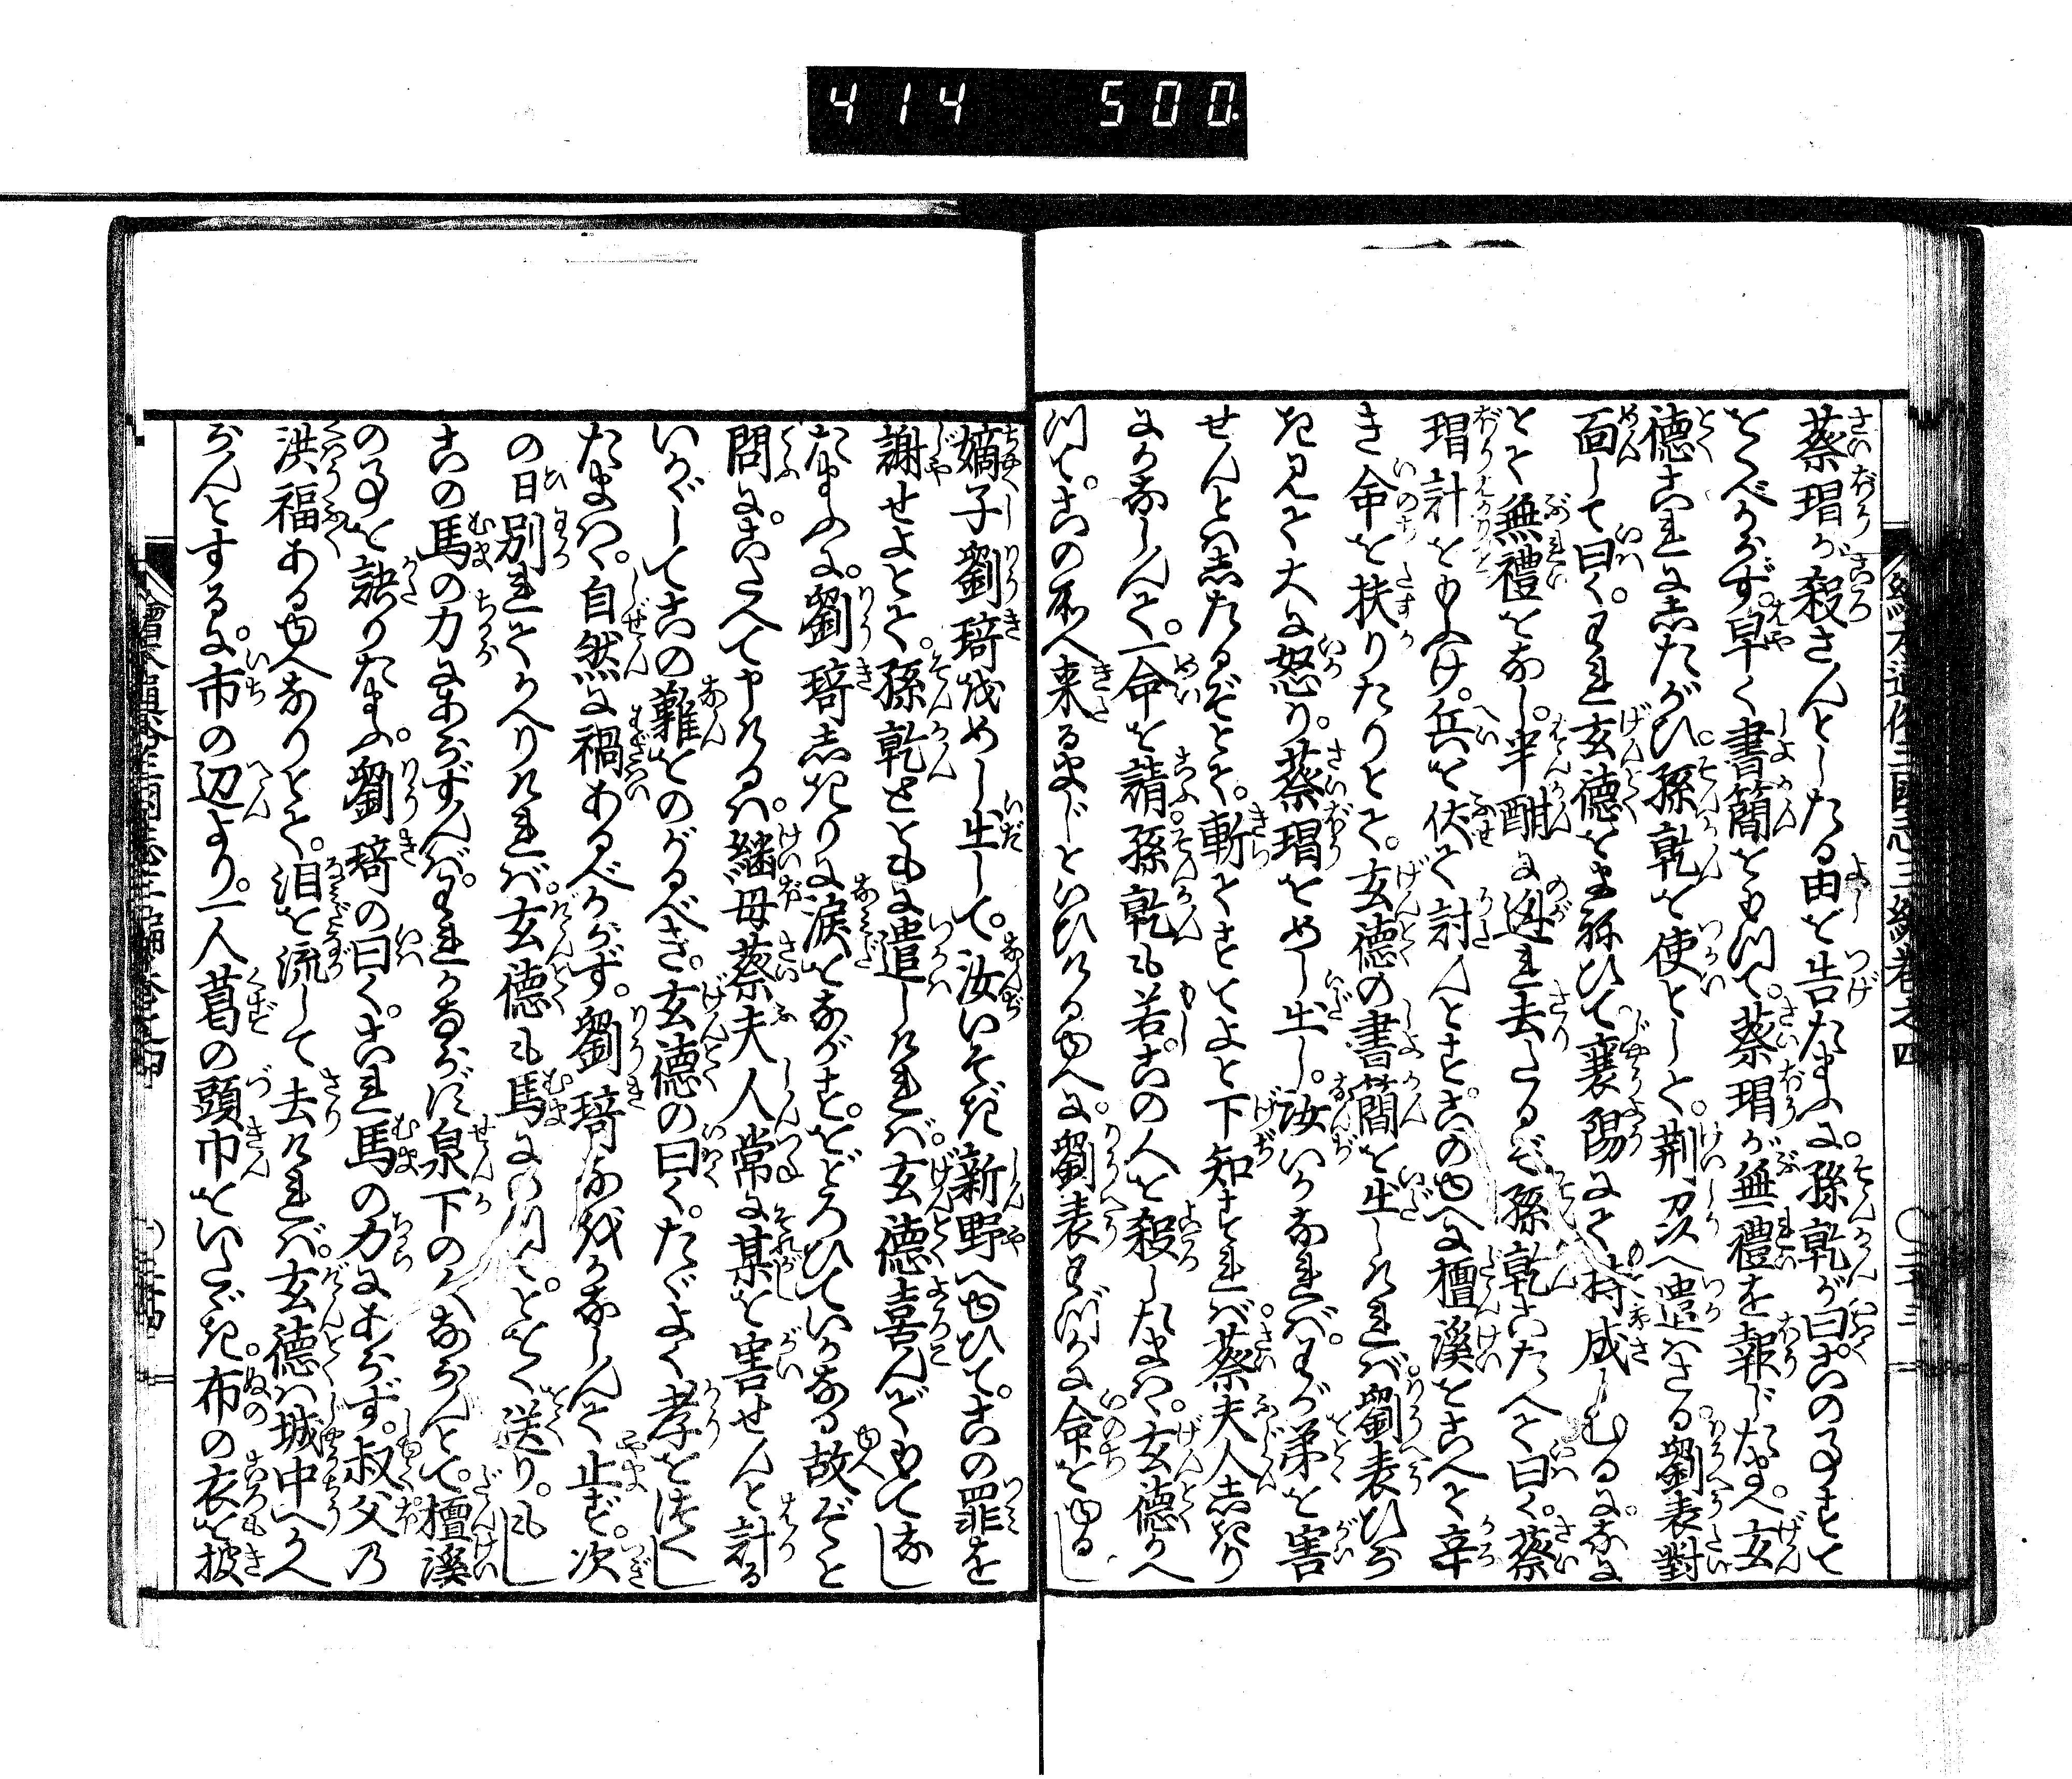 414 500
蔡瑁が殺さんとしたる由を告たまふに。孫乾が曰このの事すて
をくべからず。早く書簡をもつて。蔡瑁が無禮を報じたまへ。玄
德これにしたがひ。孫乾を使として。荆刕へ遣はさる。劉表對
面して曰く。われ玄德をまねひて襄陽にて持成しむるに。なに
とて無禮をなし。半酣に迯れ去たるぞ孫乾こたへて曰く。蔡
瑁計をもふけ。兵を伏て討んとす。このゆへに檀溪をこへて辛
き命を扶りたりとて。玄德の書簡を出しければ。劉表ひら
き見て大に怒り。蔡瑁をめし出し。汝いかなれば。わが弟を害
せんとはしたるぞとて。斬てすてよと下知すれば。蔡夫人しきり
にかなしんで。一命を請。孫乾も若この人を殺したまはゞ。玄德かへ
つて。この所へ来るまじといひけるゆへに。劉表わづかに命をゆるし
嫡子劉琦をめし出して。汝いそぎ新野へゆひて。この罪を
謝せよとて。孫乾とともに遣しければ。玄德喜んでもてなし
たまふに。劉琦しきりに淚をながす。をどろひていかなる故ぞと
問に。こたへて申けるは。繼母蔡夫人常に某を害せんと計る
いかゞしてこの難をのがるべき。玄德の曰く。たゞよく孝をつくし
たまはゞ。自然に禍あるべからず。劉琦なをかなしんで止ず。次
の日別れてかへりければ。玄德も馬にのつて。とをく送り。もし
この馬の力にあらずんば。われかならず泉下の人ならんとて。檀溪
の事を訣りたまふ。劉琦の曰く。これ馬の力にあらず。叔父乃
洪福あるゆへなりとて。泪を流して去ければ。玄德は城中へかへ
らんとするに。市の辺より。一人葛の頭巾をいたゞき。布の衣を披